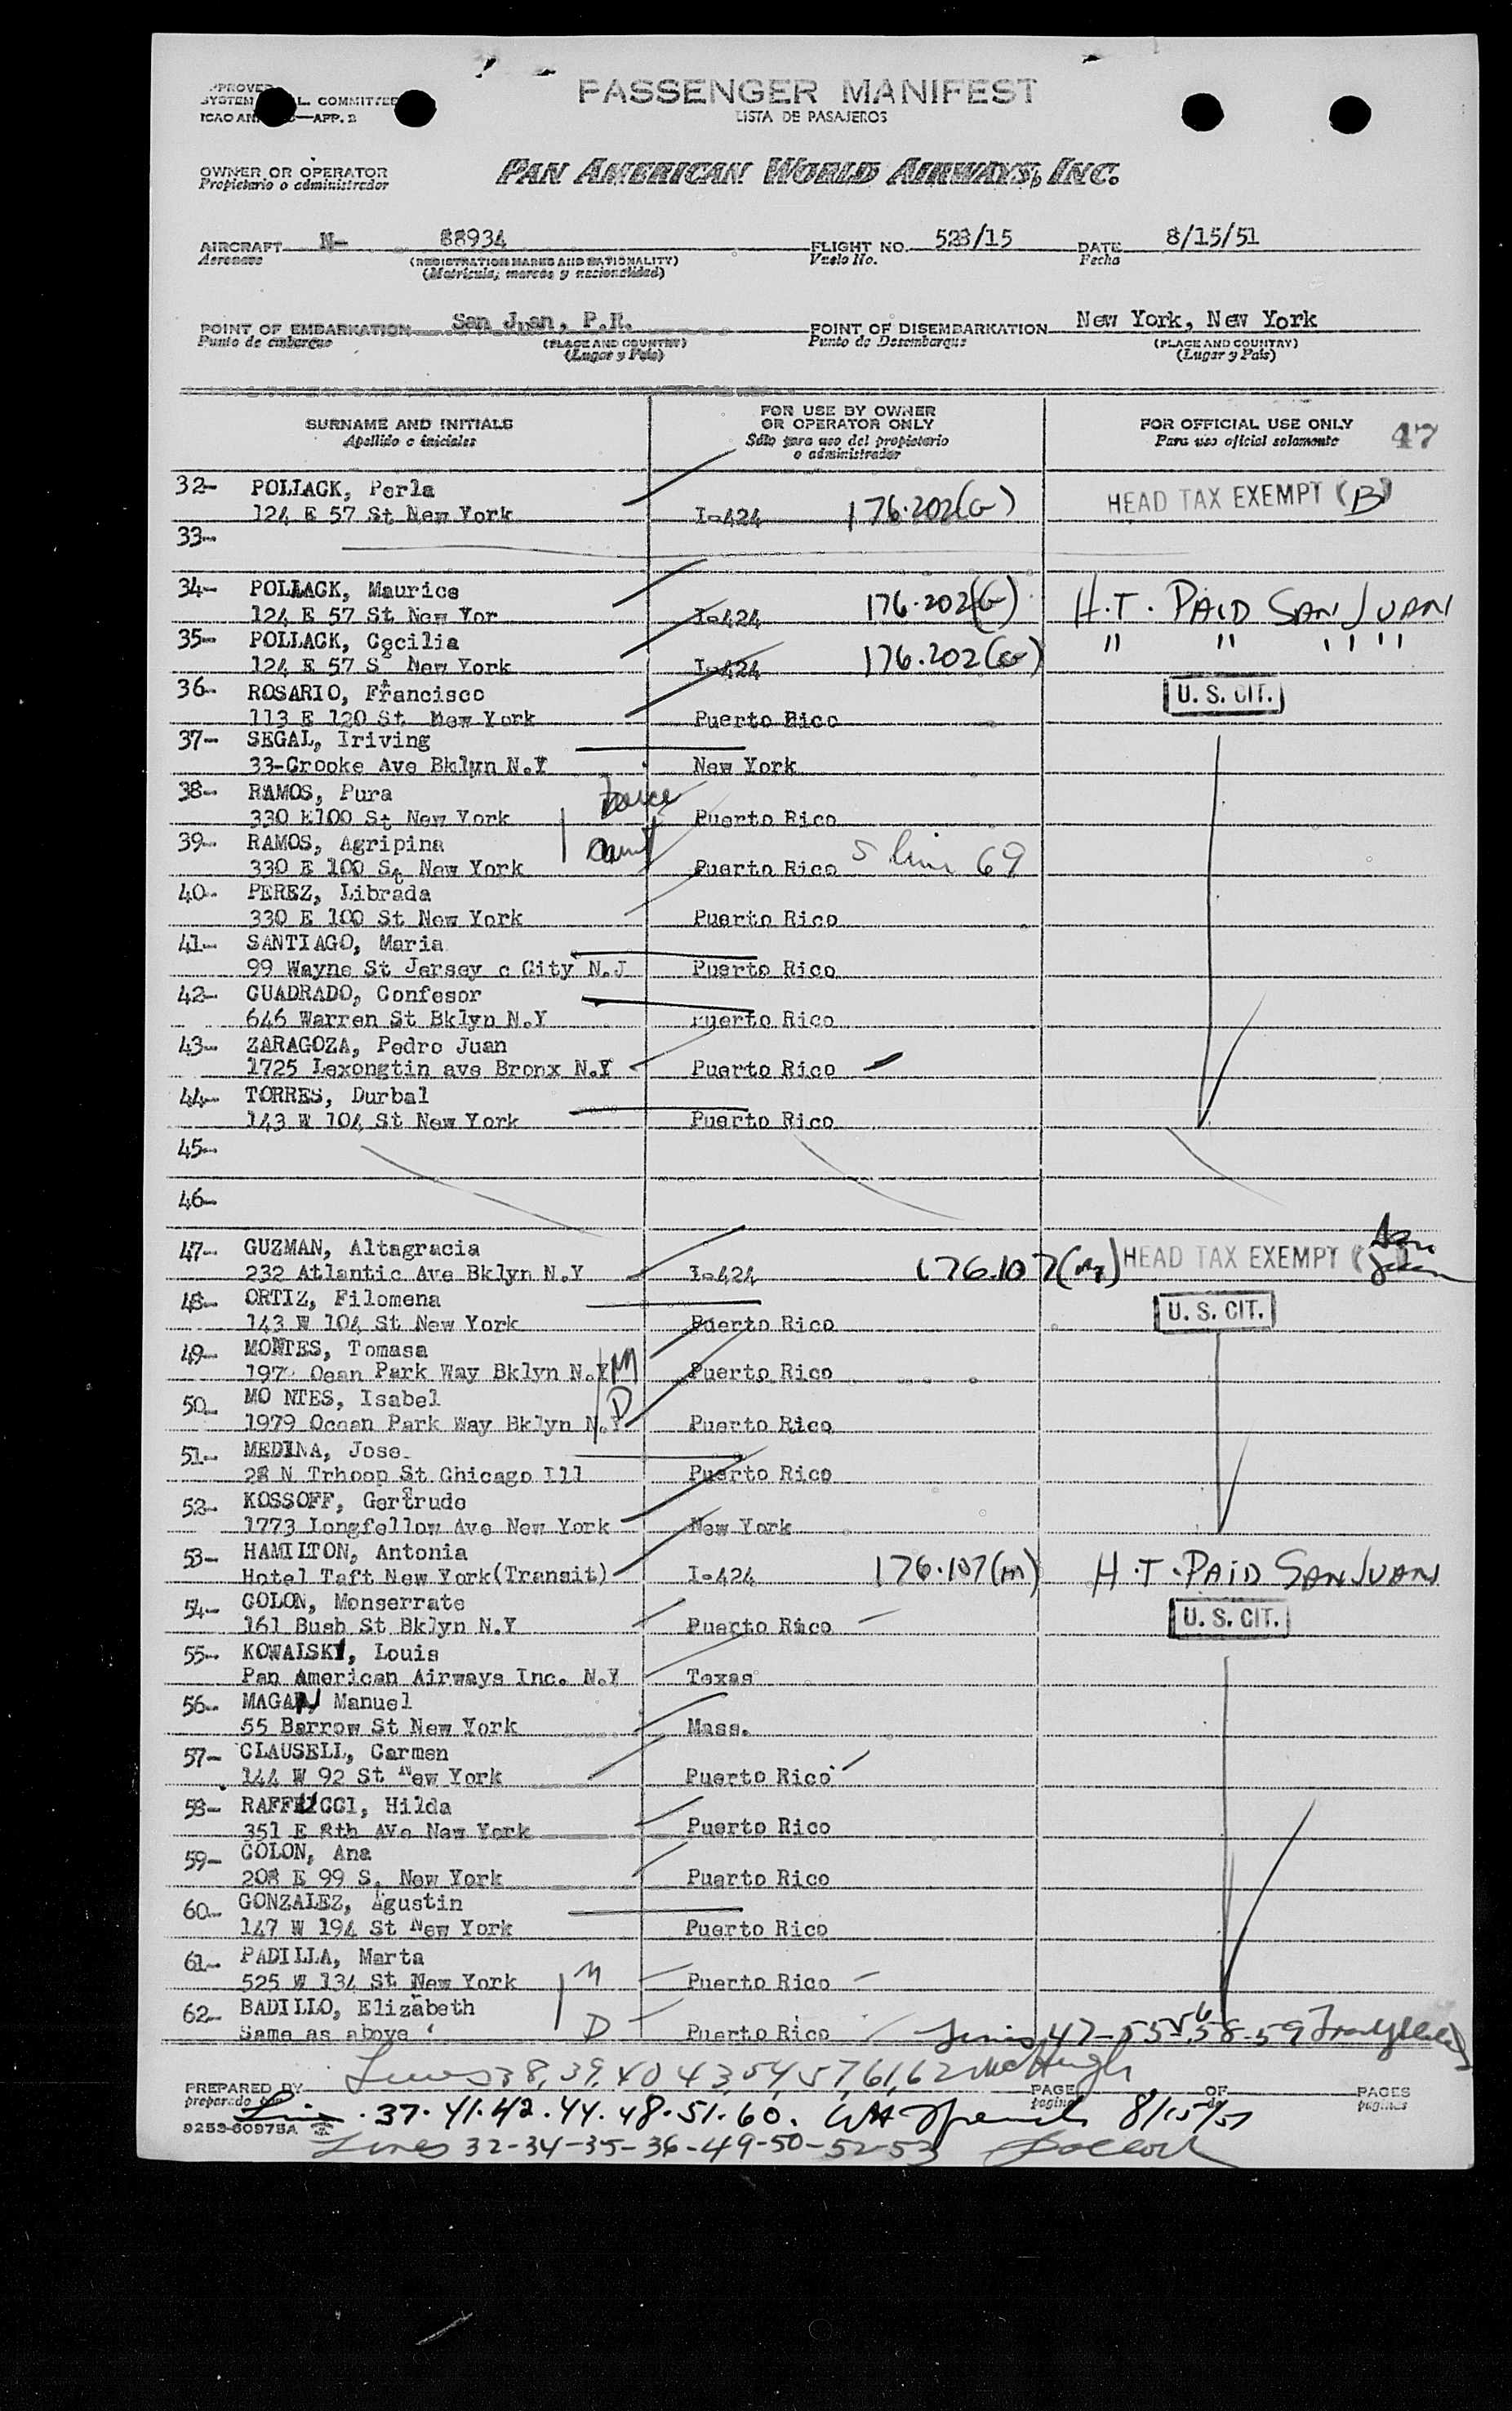 PASSENGER MANIFEST
LISTA DE PASAJEROS
SYSTEM L. COMMITTEE
ICAO AN —APP. B
OWNER OR OPERATOR
Propietario o administrador
PAN AMERICAN WORLD AIRWAYS, INC.
AIRCRAFT N- 88934 FLIGHT NO. 523/15 DATE 8/15/51
Aeronave (REGISTRATION MARKS AND NATIONALITY) Vuelo No. Fecha
(Matricula, marcas y nacionalidad)
POINT OF EMBARKATION San Juan, P.R. POINT OF DISEMBARKATION New York, New York
Punto de embarque (PLACE AND COUNTRY) Punto de Desembarque (PLACE AND COUNTRY)
(Lugar y Pais) (Lugar y Pais)
SURNAME AND INITIALS FOR USE BY OWNER OR OPERATOR ONLY FOR OFFICIAL USE ONLY 47
Apellido e iniciales Sólo para uso del propietario o administrador Para uso oficial solamente
32- POLLACK, Perla HEAD TAX EXEMPT (B)
124 E 57 St New York I-424 176.202(G)
33-
34- POLLACK, Maurice
124 E 57 St New Yor I-424 176.202(G) H.T. PAID SAN JUAN
35- POLLACK, Cecilia " " " "
124 E 57 St New York I-424 176.202(G)
36- ROSARIO, Francisco U. S. CIT.
113 E 120 St New York Puerto Rico
37- SEGAL, Iriving
33-Crooke Ave Bklyn N.Y New York
38- RAMOS, Pura
330 E100 St New York Puerto Rico
39- RAMOS, Agripina
330 E 100 St New York Puerto Rico line 69
40- PEREZ, Librada
330 E 100 St New York Puerto Rico
41- SANTIAGO, Maria
99 Wayne St Jersey c City N.J Puerto Rico
42- CUADRADO, Confesor
646 Warren St Bklyn N.Y Puerto Rico
43- ZARAGOZA, Pedro Juan
1725 Lexongtin ave Bronx N.Y Puerto Rico
44- TORRES, Durbal
143 W 104 St New York Puerto Rico
45-
46-
47- GUZMAN, Altagracia HEAD TAX EXEMPT San Juan
232 Atlantic Ave Bklyn N.Y I-424 176.107(m)
48- ORTIZ, Filomena U. S. CIT.
143 W 104 St New York Puerto Rico
49- MONTES, Tomasa
197 Ocan Park Way Bklyn N.Y M Puerto Rico
50- MO NTES, Isabel D
1979 Ocean Park Way Bklyn N.Y Puerto Rico
51- MEDINA, Jose
28 N Trhoop St Chicago Ill Puerto Rico
52- KOSSOFF, Gertrude
1773 Longfellow Ave New York New York
53- HAMILTON, Antonia
Hotel Taft New York(Transit) I-424 176.107(m) H.T. PAID SAN JUAN
54- COLON, Monserrate U. S. CIT.
161 Bush St Bklyn N.Y Puerto Rico
55- KOWALSKY, Louis
Pan American Airways Inc. N.Y Texas
56- MAGAN, Manuel
55 Barrow St New York Mass.
57- CLAUSELL, Carmen
144 W 92 St New York Puerto Rico
58- RAFFUCCI, Hilda
351 E 8th AVe New York Puerto Rico
59- COLON, Ana
208 E 99 St New York Puerto Rico
60- GONZALEZ, Agustin
147 W 194 St New York Puerto Rico
61- PADILLA, Marta
525 W 134 St New York M Puerto Rico
62- BADILLO, Elizabeth
Same as above D Puerto Rico Lines 47-55-56-58-59
Lines 38,39,40 43,54,57,61,62 McHugh
PREPARED BY PAGE OF PAGES
preparado por pagina de paginas
Line. 37.41.42.44.48.51.60. 8/15/51
9253-60975A
Lines 32-34-35-36-49-50-52-53